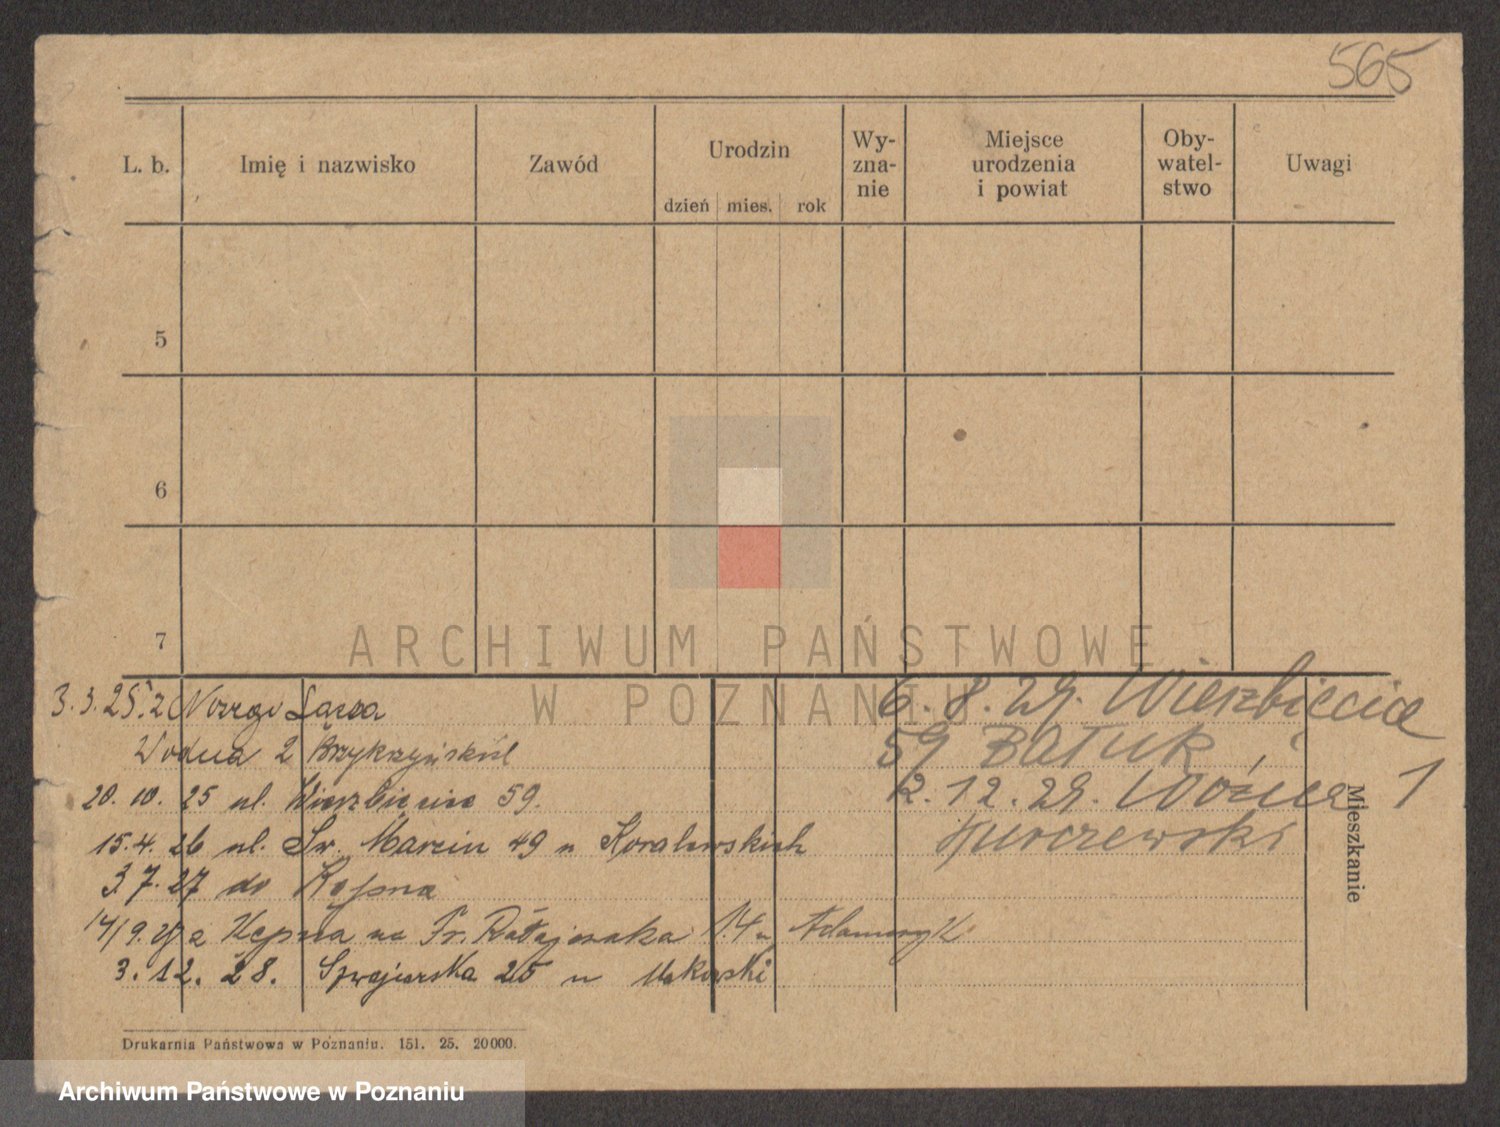 565
L. b. Imię i nazwisko Zawód Urodzin Wy-zna-nie Miejsce urodzenia i powiat Oby-watel-stwo Uwagi
dzień mies. rok
5
6
7
ARCHIWUM PAŃSTWOWE
W POZNANIU
3.3.25. z
Wodna 2
20. 10. 25 ul. Wierzbięcice 59.
15.4. 26 ul. Św. Marcin 49 u
3.7.27 do Kępna
14/9. z Kępna na Fr. Ratajczaka 14 u
3. 12. 28. 25 u Makowski
6. 8. 29. Wierzbięcice
59
2. 12. 29. Woźna 1
Mieszkanie
Drukarnia Państwowa w Poznaniu. 151. 25. 20000.
Archiwum Państwowe w Poznaniu